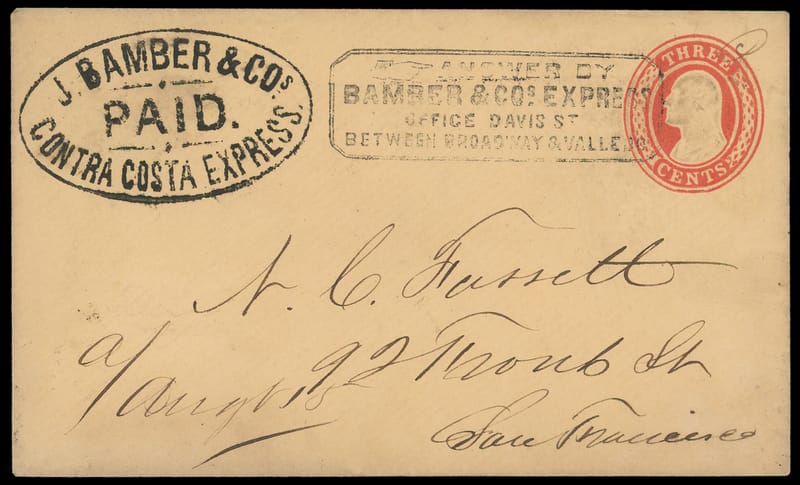 J. BAMBER & COS.
PAID.
CONTRA COSTA EXPRESS.
ANSWER BY
BAMBER & COS EXPRESS
OFFICE DAVIS ST
BETWEEN BROADWAY & VALLEJO
THREE
CENTS
N. C. Fassett
92 Front St
San Francisco